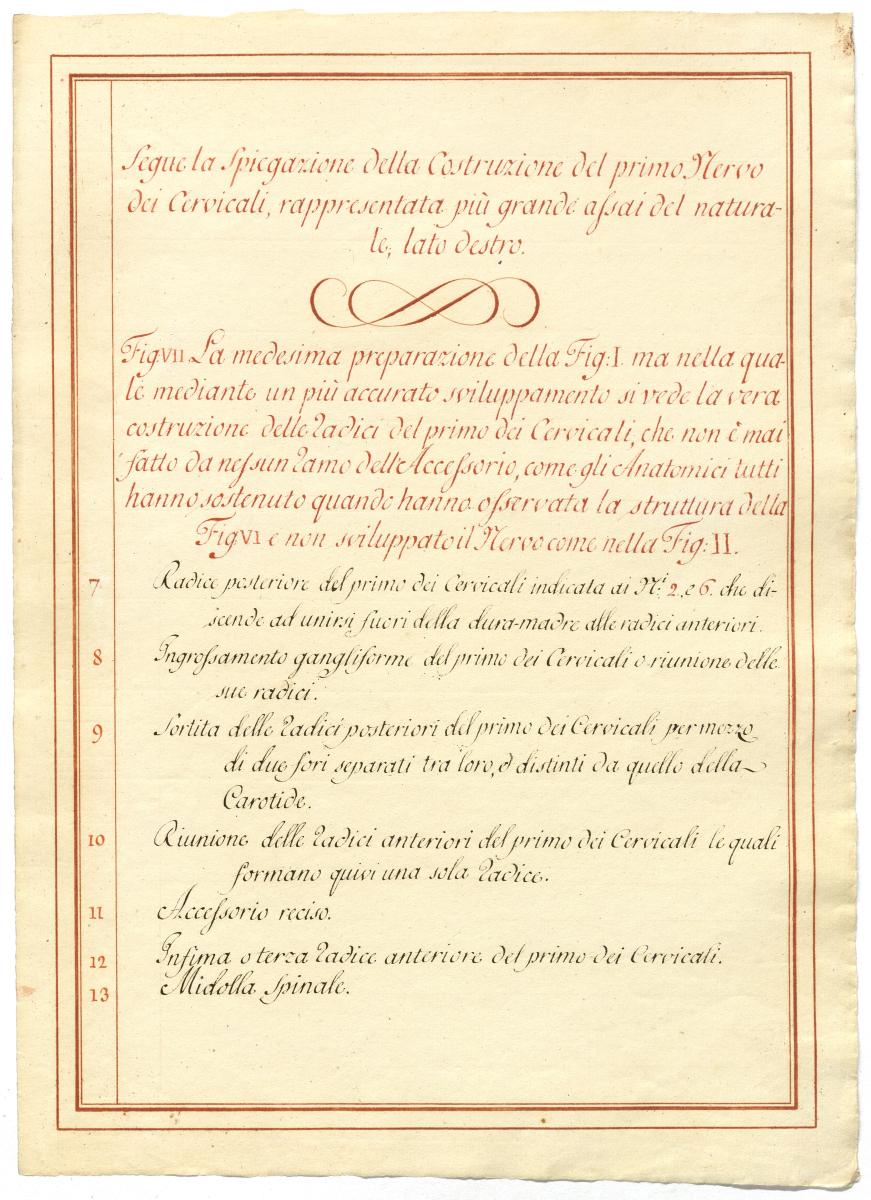 Segue la Spiegazione della Costruzione del primo Nervo
dei Cervicali, rappresentata più grande assai del natura-
le; lato destro.
Fig:VII La medesima preparazione della Fig:I ma nella qua-
le mediante un più accurato sviluppamento si vede la vera
costruzione delle Radici del primo dei Cervicali, che non è mai
fatto da nessun Ramo dell'Accessorio, come gli Anatomici tutti
hanno sostenuto quando hanno osservata la struttura della
Fig:VI e non sviluppato il Nervo come nella Fig:II.
7 Radice posteriore del primo dei Cervicali indicata ai N.i 2. e 6. che di-
scende ad unirsi fuori della dura-madre alle radici anteriori.
8 Ingrossamento gangliforme del primo dei Cervicali o riunione delle
sue radici.
9 Sortita delle Radici posteriori del primo dei Cervicali per mezzo
di due fori separati tra loro, e distinti da quello della
Carotide.
10 Riunione delle Radici anteriori del primo dei Cervicali le quali
formano quivi una sola Radice.
11 Accessorio reciso.
12 Infima o terza Radice anteriore del primo dei Cervicali.
13 Midolla Spinale.